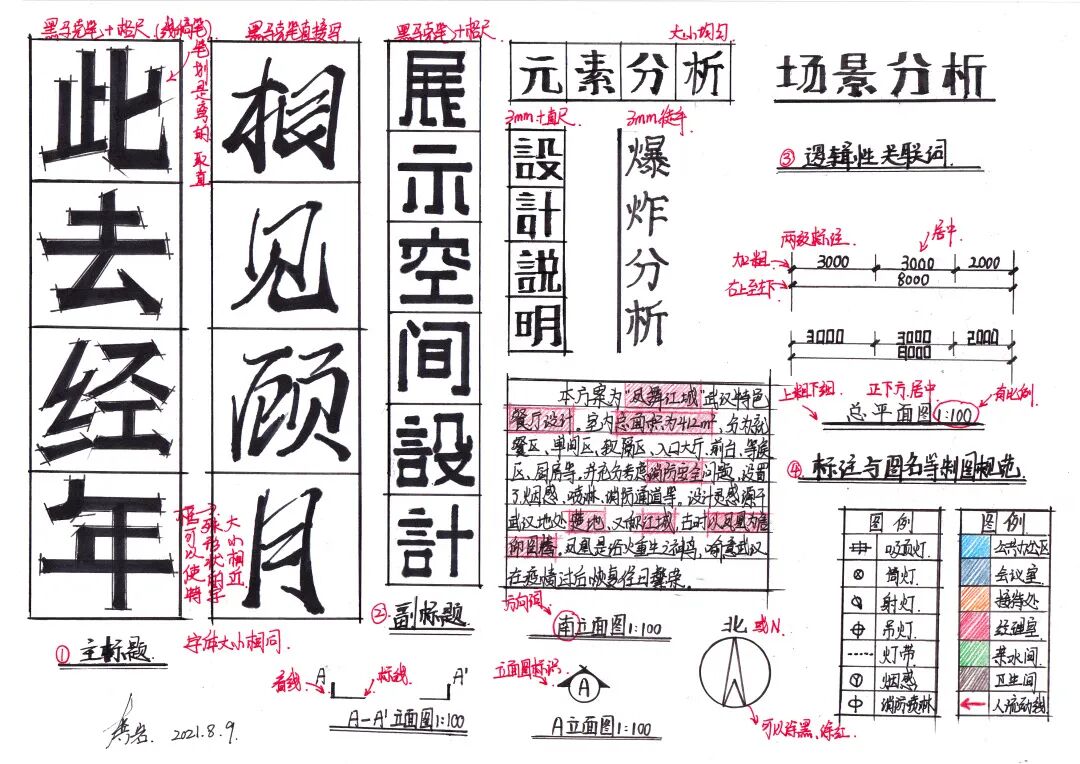 黑马克笔+格尺(或铅笔)
此去经年
笔划是弯的取直
格子可以使特殊形状的字大小相近
字体大小相同
① 主标题
黑马克笔直接写
相见顾月
黑马克笔+格尺
展示空间設計
② 副标题
元素分析
大小均匀
3mm+直尺
設計説明
3mm徒手
爆炸分析
场景分析
③ 逻辑性关联词
两级标注
居中
加粗
右上至左下
3000 3000 2000
8000
3000 3000 2000
8000
上粗下细
正下方居中
有比例
总平面图1:100
④ 标注与图名等制图规范
本方案为“凤舞江城”武汉特色
餐厅设计。室内总面积为412m²,分为就
餐区、单间区、散席区、入口大厅、前台、等候
区、厨房等。并充分考虑消防安全问题,设置
了烟感、喷淋、消防通道等。设计灵感源于
武汉地处楚地,又似江城,古时以凤凰为信
仰图腾。凤凰是浴火重生之神鸟,喻意武汉
在疫情过后恢复往日繁荣。
方向词
南立面图1:100
看线
A
剖线
A'
A-A'立面图1:100
立面图标识
A
A立面图1:100
北 或N
可以涂黑、涂红
图例
吸顶灯
筒灯
射灯
吊灯
灯带
烟感
消防喷淋
图例
公共办公区
会议室
接待处
经理室
茶水间
卫生间
人流动线
2021.8.9